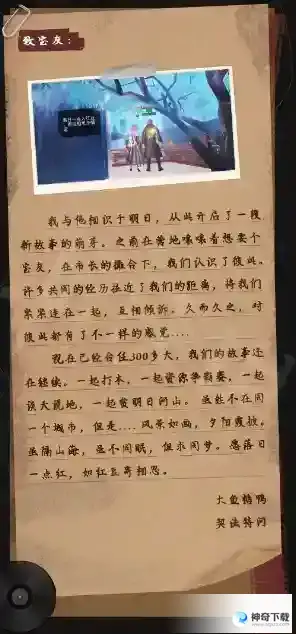 致营友:
我与他相识于明日,从此开启了一段
新故事的萌芽。之前在营地嚷嚷着想要个
营友,在市长的撮合下,我们认识了彼此。
许多共同的经历拉近了我们的距离,将我们
紧紧连在一起,互相倾诉。久而久之,对
彼此都有了不一样的感觉....
现在已经合住300多天,我们的故事还
在继续。一起打木,一起资源争霸赛,一起
谈天说地,一起赏明日河山。虽然不在同
一个城市,但是....风景如画,夕阳霞披。
虽隔山海,虽不同眠,但求同梦。愿落日
一点红,如红豆寄相思。
大鱼
契法特问
神奇下载